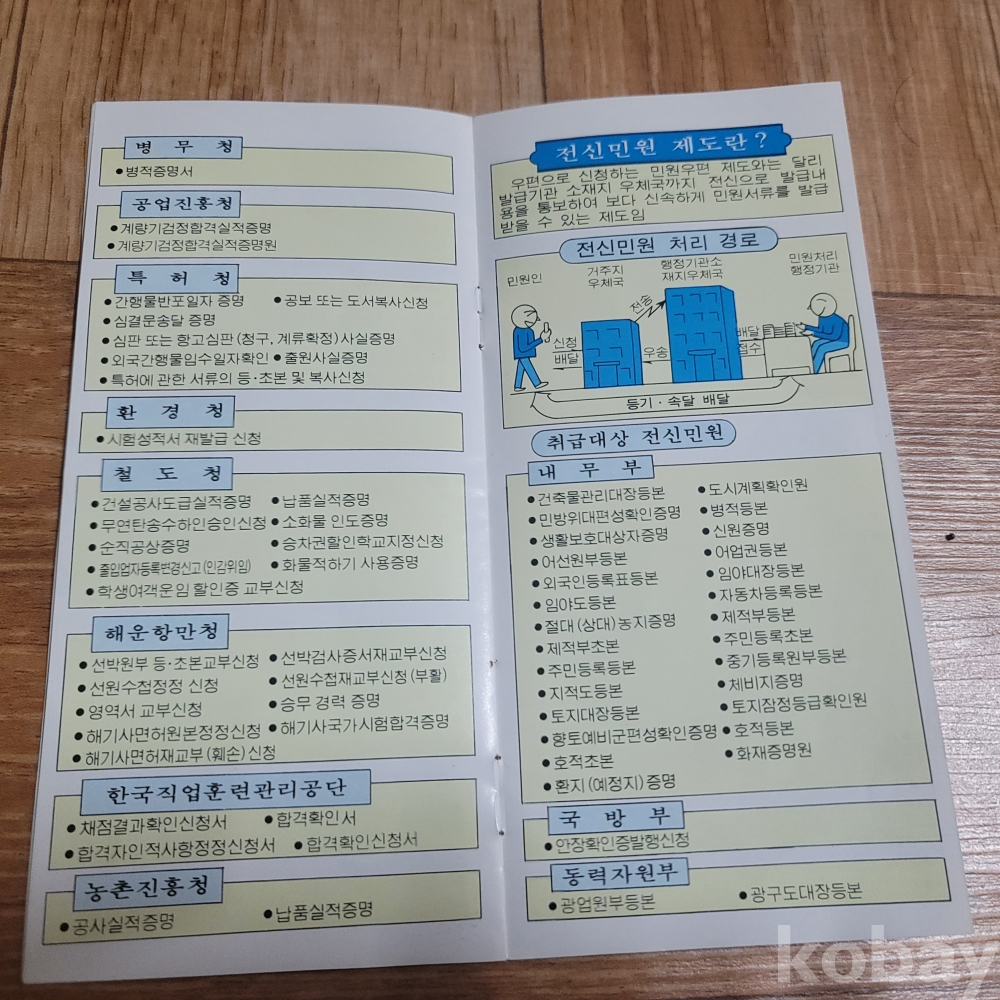 병 무 청
● 병적증명서
공업진흥청
● 계량기검정합격실적증명
● 계량기검정합격실적증명원
특 허 청
● 간행물반포일자 증명 ● 공보 또는 도서복사신청
● 심결문송달 증명
● 심판 또는 항고심판 (청구, 계류확정) 사실증명
● 외국간행물입수일자확인 ● 출원사실증명
● 특허에 관한 서류의 등·초본 및 복사신청
환 경 청
● 시험성적서 재발급 신청
철 도 청
● 건설공사도급실적증명 ● 납품실적증명
● 무연탄송수하인승인신청 ● 소화물 인도증명
● 순직공상증명 ● 승차권할인학교지정신청
● 출입업자등록변경신고 (인감위임) ● 화물적하기 사용증명
● 학생여객운임 할인증 교부신청
해운항만청
● 선박원부 등·초본교부신청 ● 선박검사증서재교부신청
● 선원수첩정정 신청 ● 선원수첩재교부신청 (부활)
● 영역서 교부신청 ● 승무 경력 증명
● 해기사면허원본정정신청 ● 해기사국가시험합격증명
● 해기사면허재교부 (훼손) 신청
한국직업훈련관리공단
● 채점결과확인신청서 ● 합격확인서
● 합격자인적사항정정신청서 ● 합격확인신청서
농촌진흥청
● 공사실적증명 ● 납품실적증명
전신민원 제도란?
우편으로 신청하는 민원우편 제도와는 달리
발급기관 소재지 우체국까지 전신으로 발급내
용을 통보하여 보다 신속하게 민원서류를 발급
받을 수 있는 제도임
전신민원 처리 경로
민원인 거주지 우체국 행정기관소재지우체국 민원처리 행정기관
전송
신청
배달
우송
배달
접수
등기·속달 배달
취급대상 전신민원
내 무 부
● 건축물관리대장등본 ● 도시계획확인원
● 민방위대편성확인증명 ● 병적등본
● 생활보호대상자증명 ● 신원증명
● 어선원부등본 ● 어업권등본
● 외국인등록표등본 ● 임야대장등본
● 임야도등본 ● 자동차등록등본
● 절대 (상대) 농지증명 ● 제적부등본
● 제적부초본 ● 주민등록초본
● 주민등록등본 ● 중기등록원부등본
● 지적도등본 ● 체비지증명
● 토지대장등본 ● 토지잠정등급확인원
● 향토예비군편성확인증명 ● 호적등본
● 호적초본 ● 화재증명원
● 환지 (예정지) 증명
국 방 부
● 안장확인증발행신청
동력자원부
● 광업원부등본 ● 광구도대장등본
kobay